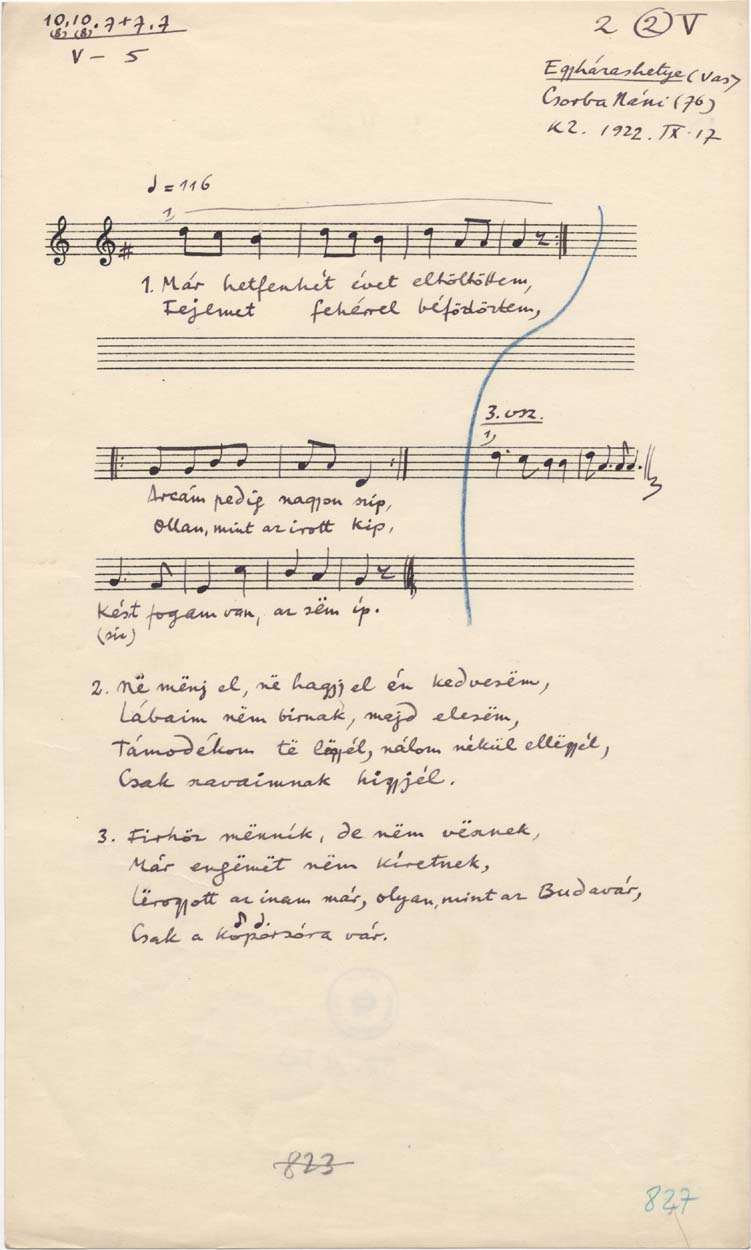 10, 10. 7+7. 7
(8) (8)
V – 5
2 (2) V
Egyházashetye (Vas)
Csorba Náni (76)
KZ. 1922. IX. 17
♩ = 116
1)
1. Már hetfenhét évet eltöltöttem,
Fejemet fehérrel béfödöztem,
3. vsz.
1)
Arcám pedig nagyon szip,
Ollan, mint az irott kip,
Kést fogam van, az sëm ip.
(sic)
2. Në mënj el, në hagyj el én kedvesëm,
Lábaim nëm birnak, majd elesëm,
Támodékom të légyél, nálom nékül ellëgyél,
Csak szavaimnak higyjél.
3. Firhöz mënnik, de nëm vësznek,
Már engëmët nëm kíretnek,
Lërogyott az inam már, olyan, mint az Budavár,
Csak a köpörsóra vár.
823
827